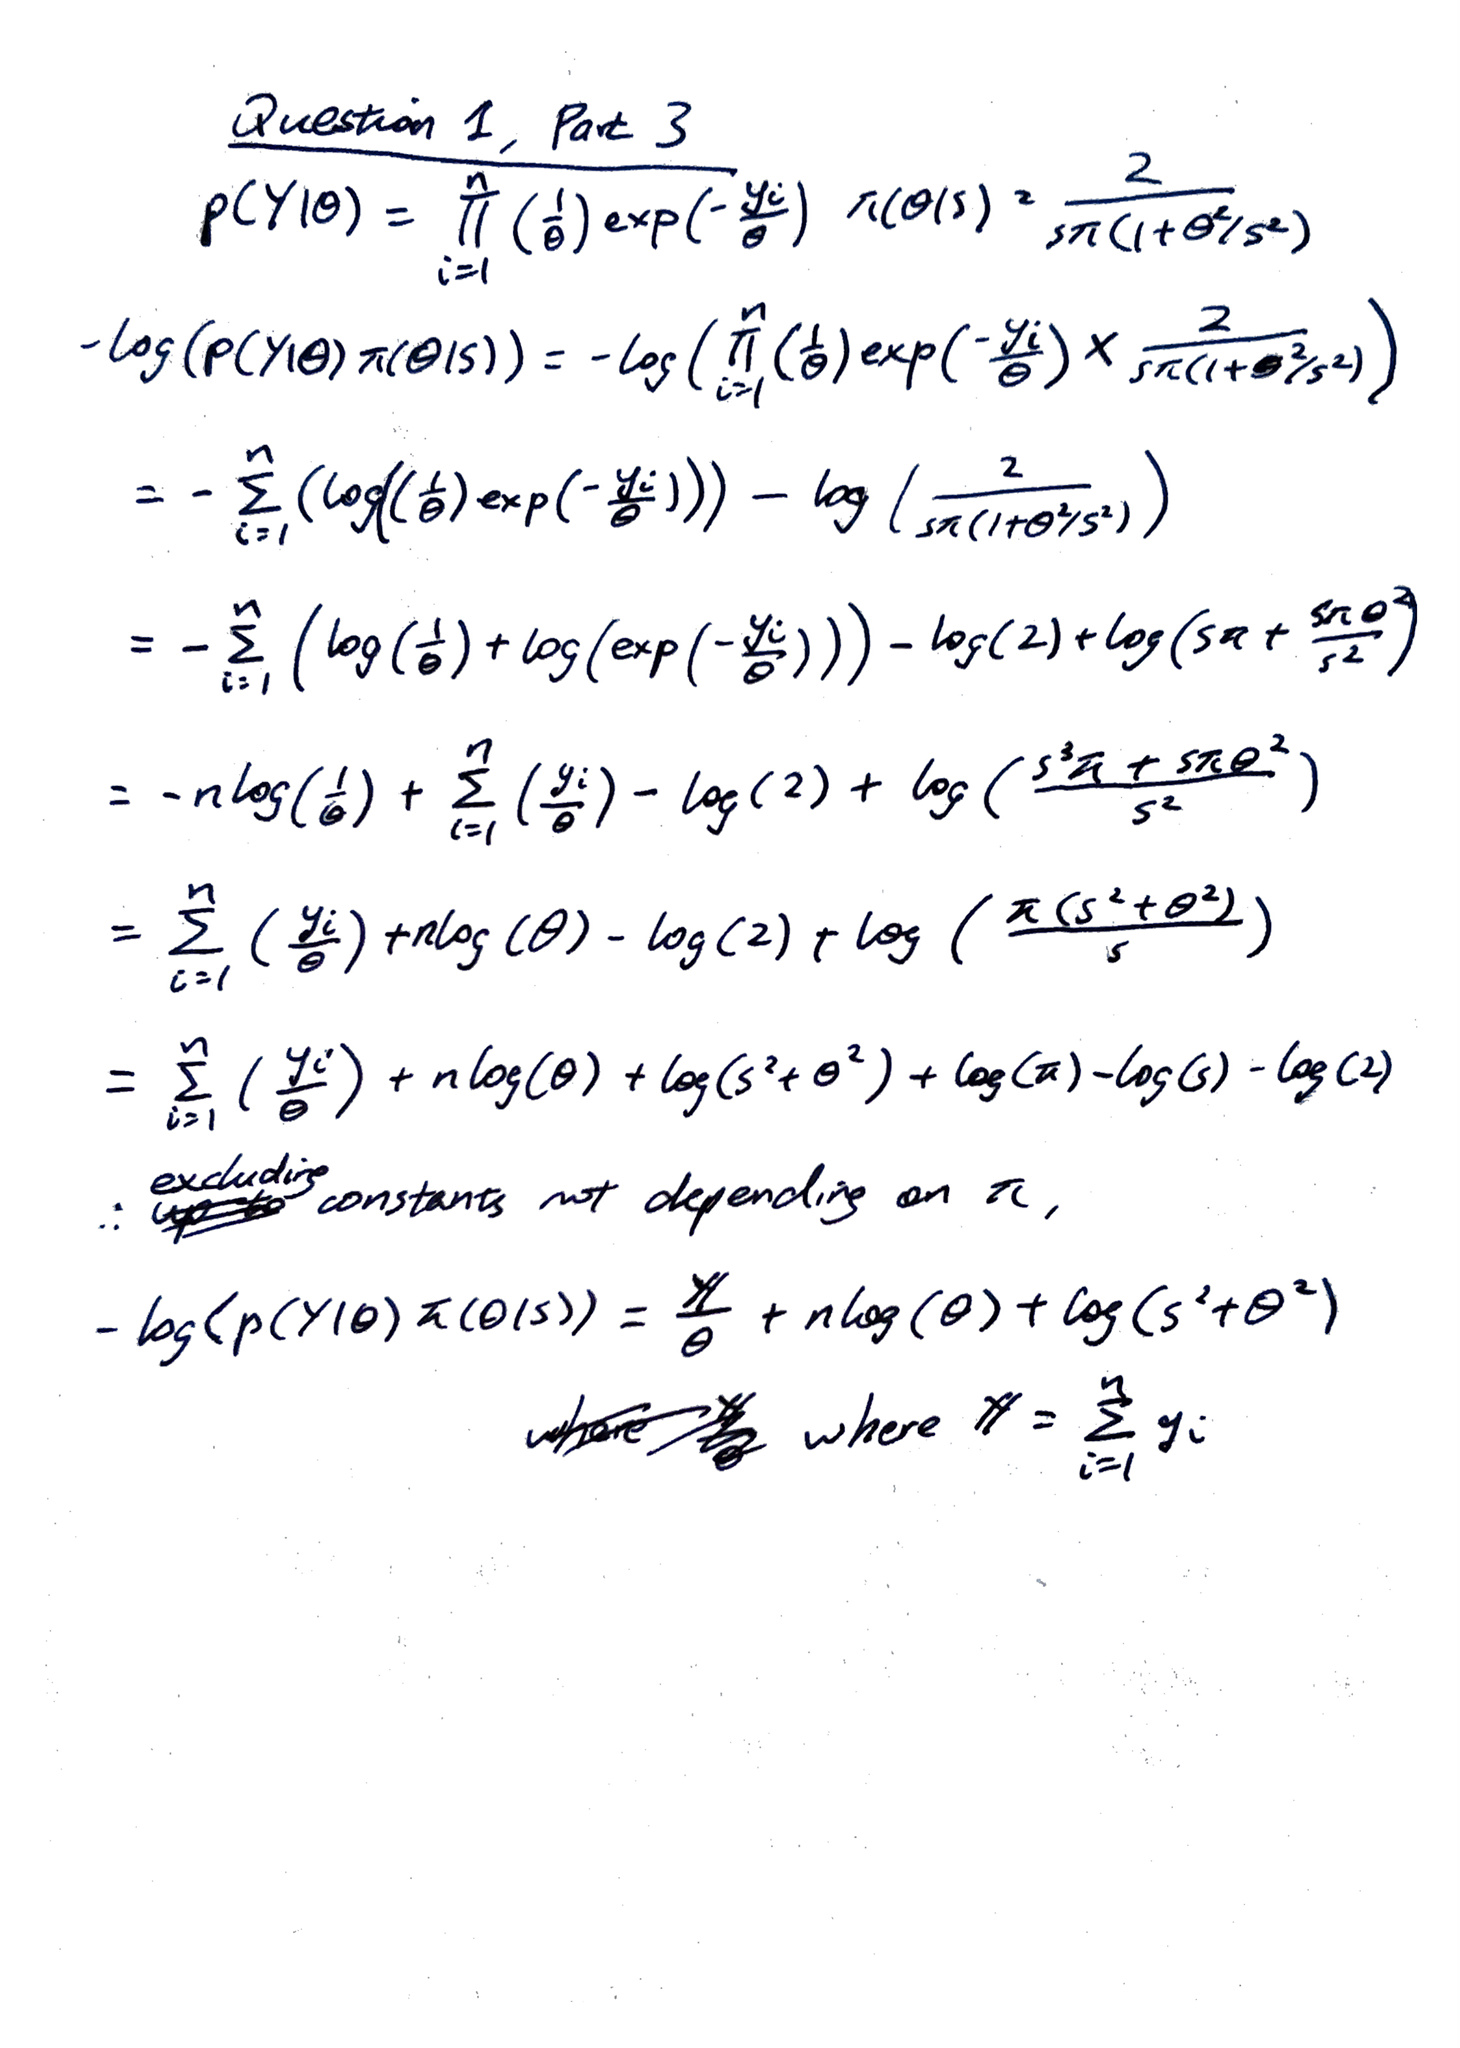 Question 1, Part 3
p(Y|θ) = ∏_{i=1}^{n} (1/θ) exp(-y_i/θ) π(θ|s) = 2/(sπ(1+θ²/s²))
-log(p(Y|θ) π(θ|s)) = -log(∏_{i=1}^{n} (1/θ) exp(-y_i/θ) × 2/(sπ(1+θ²/s²)))
= - ∑_{i=1}^{n} (log((1/θ) exp(-y_i/θ))) - log(2/(sπ(1+θ²/s²)))
= - ∑_{i=1}^{n} (log(1/θ) + log(exp(-y_i/θ))) - log(2) + log(sπ + sπθ²/s²)
= -n log(1/θ) + ∑_{i=1}^{n} (y_i/θ) - log(2) + log((s³π + sπθ²)/s²)
= ∑_{i=1}^{n} (y_i/θ) + n log(θ) - log(2) + log(π(s²+θ²)/s)
= ∑_{i=1}^{n} (y_i/θ) + n log(θ) + log(s²+θ²) + log(π) - log(s) - log(2)
∴ excluding constants not depending on π,
-log(p(Y|θ) π(θ|s)) = Y/θ + n log(θ) + log(s²+θ²)
where Y = ∑_{i=1}^{n} y_i